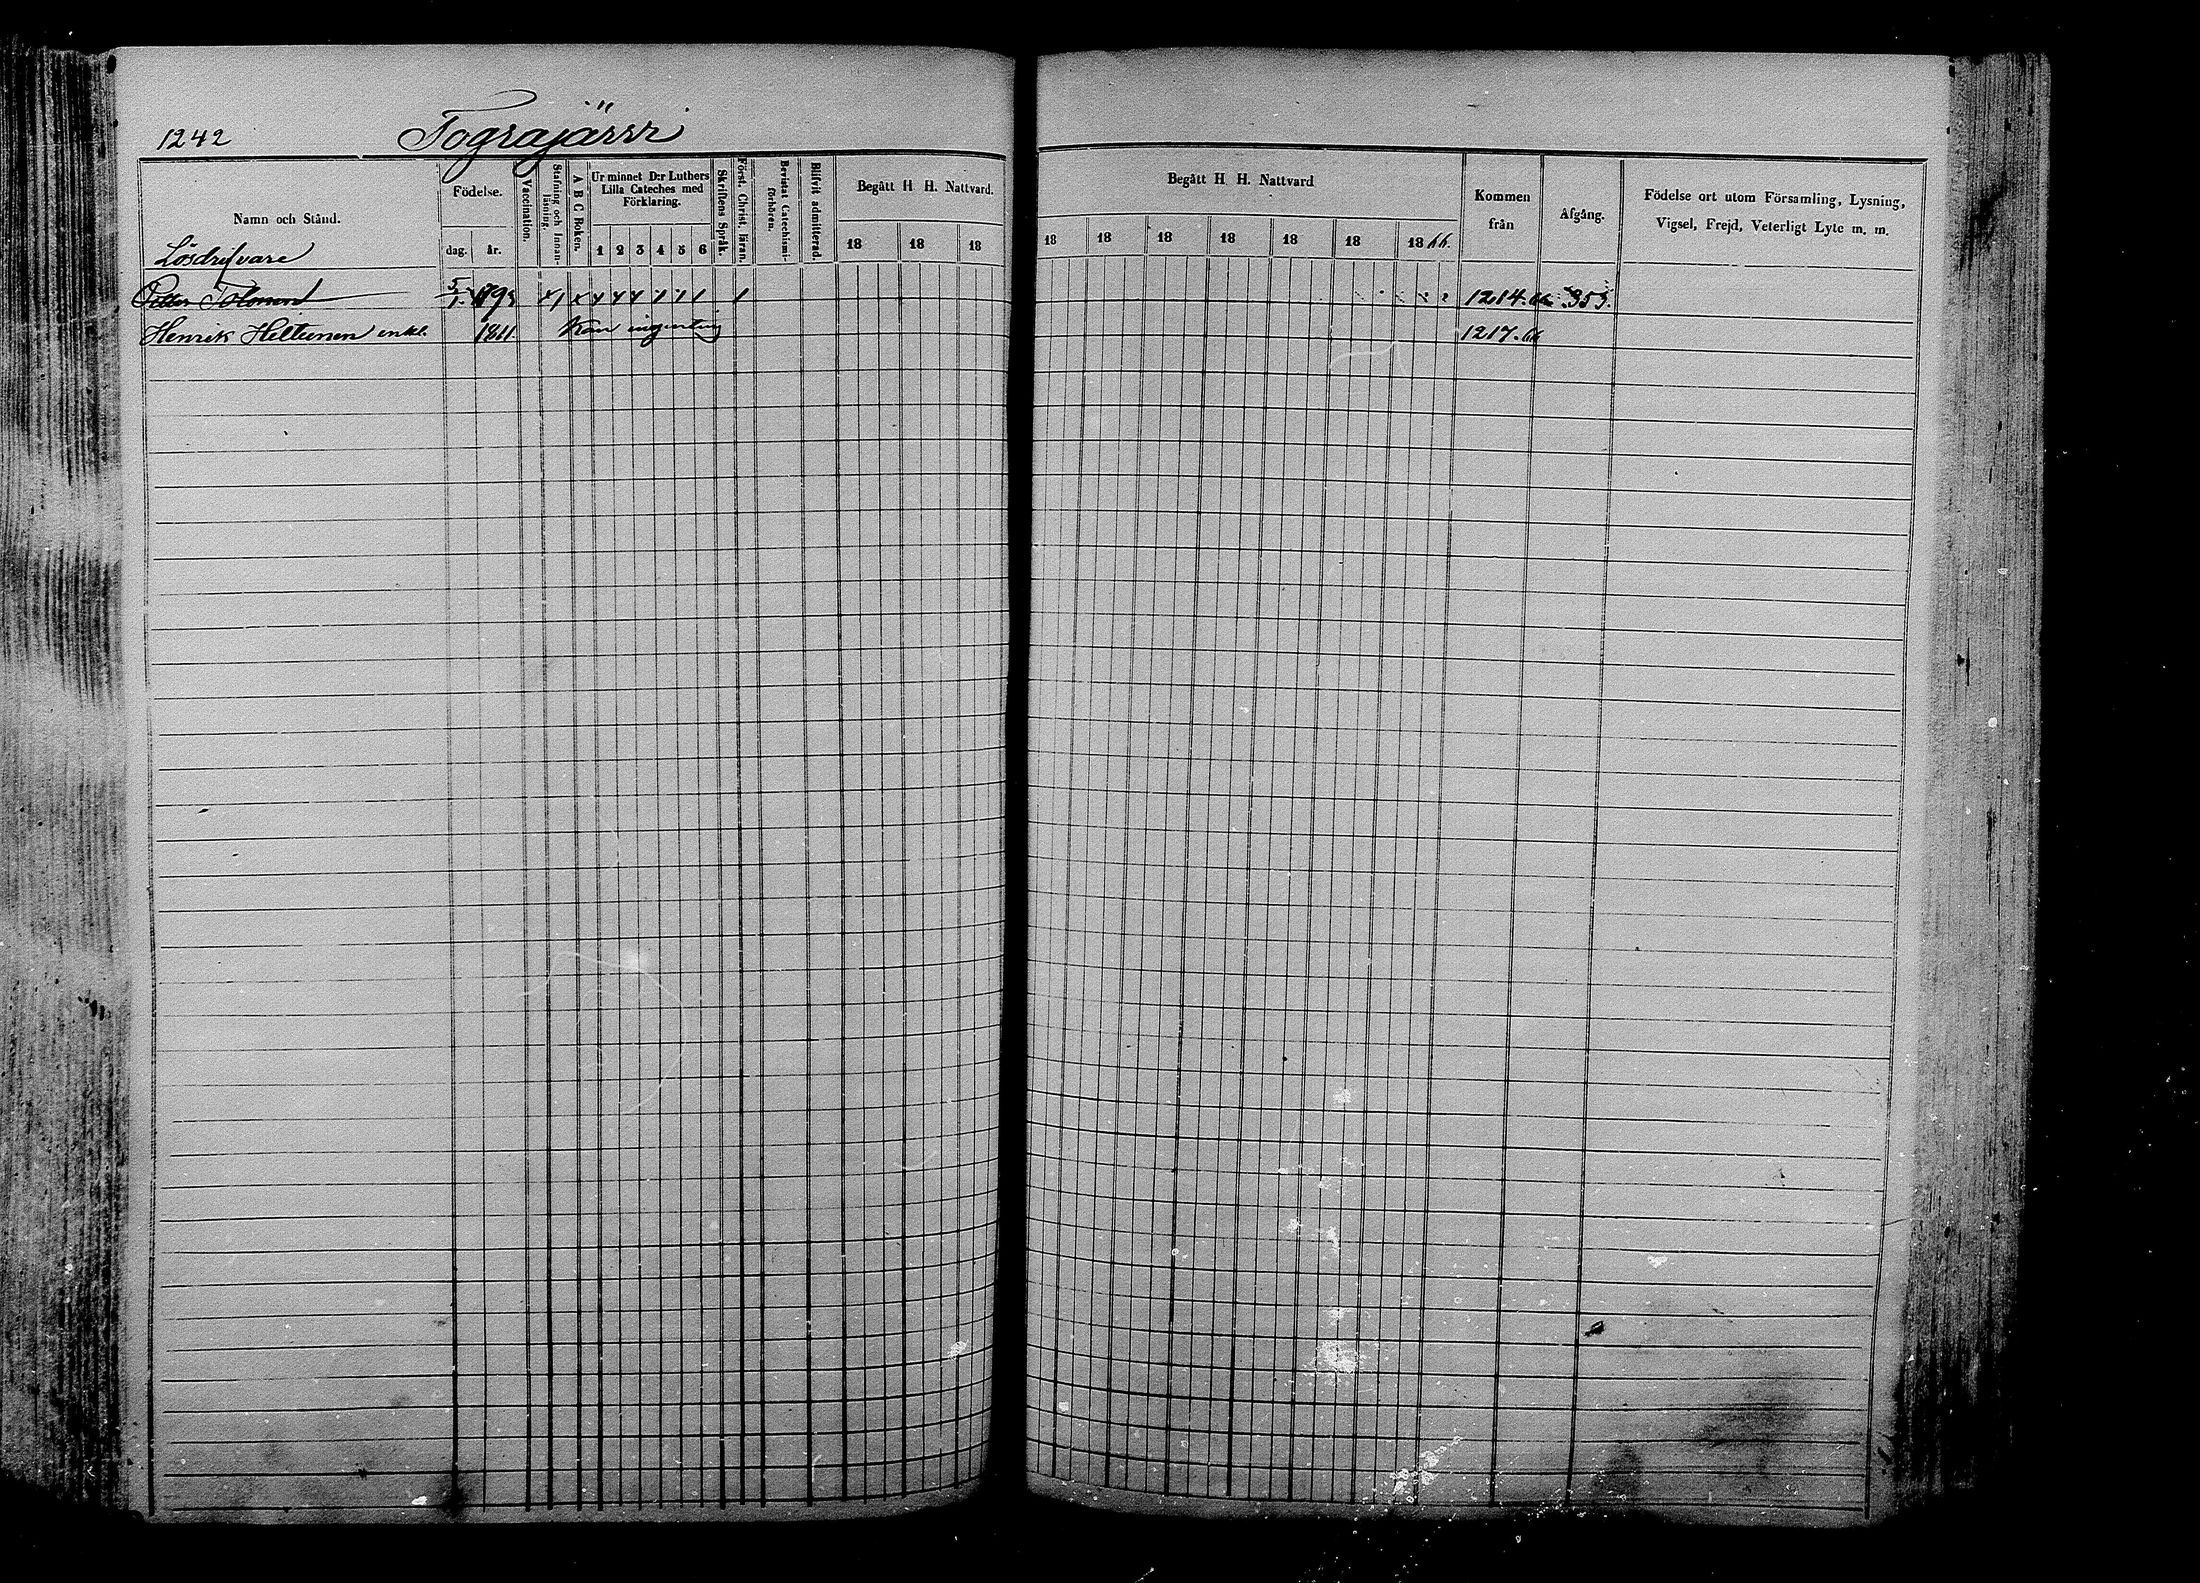 1242 Tograjärvi
Namn och Stånd.
Födelse.
dag. år.
Vaccination.
Stafning och Innan-läsning.
A B C Boken.
Ur minnet D:r Luthers
Lilla Cateches med
Förklaring.
1 2 3 4 5 6
Skriftens Språk.
Först. Christ. lära.
Bevistat Catechismi-förhören.
Blifvit admitterad.
Begått H H. Nattvard.
18 18 18
Begått H H. Nattvard
18 18 18 18 18 18 18 66.
Kommen
från
Afgång.
Födelse ort utom Församling, Lysning,
Vigsel, Frejd, Veterligt Lyte m. m.
Lösdrifvare
Petter Tolonen 5/1 1214.66 353.
Henrik Heltunen enkl. 1811. Kan ingenting 1217.66